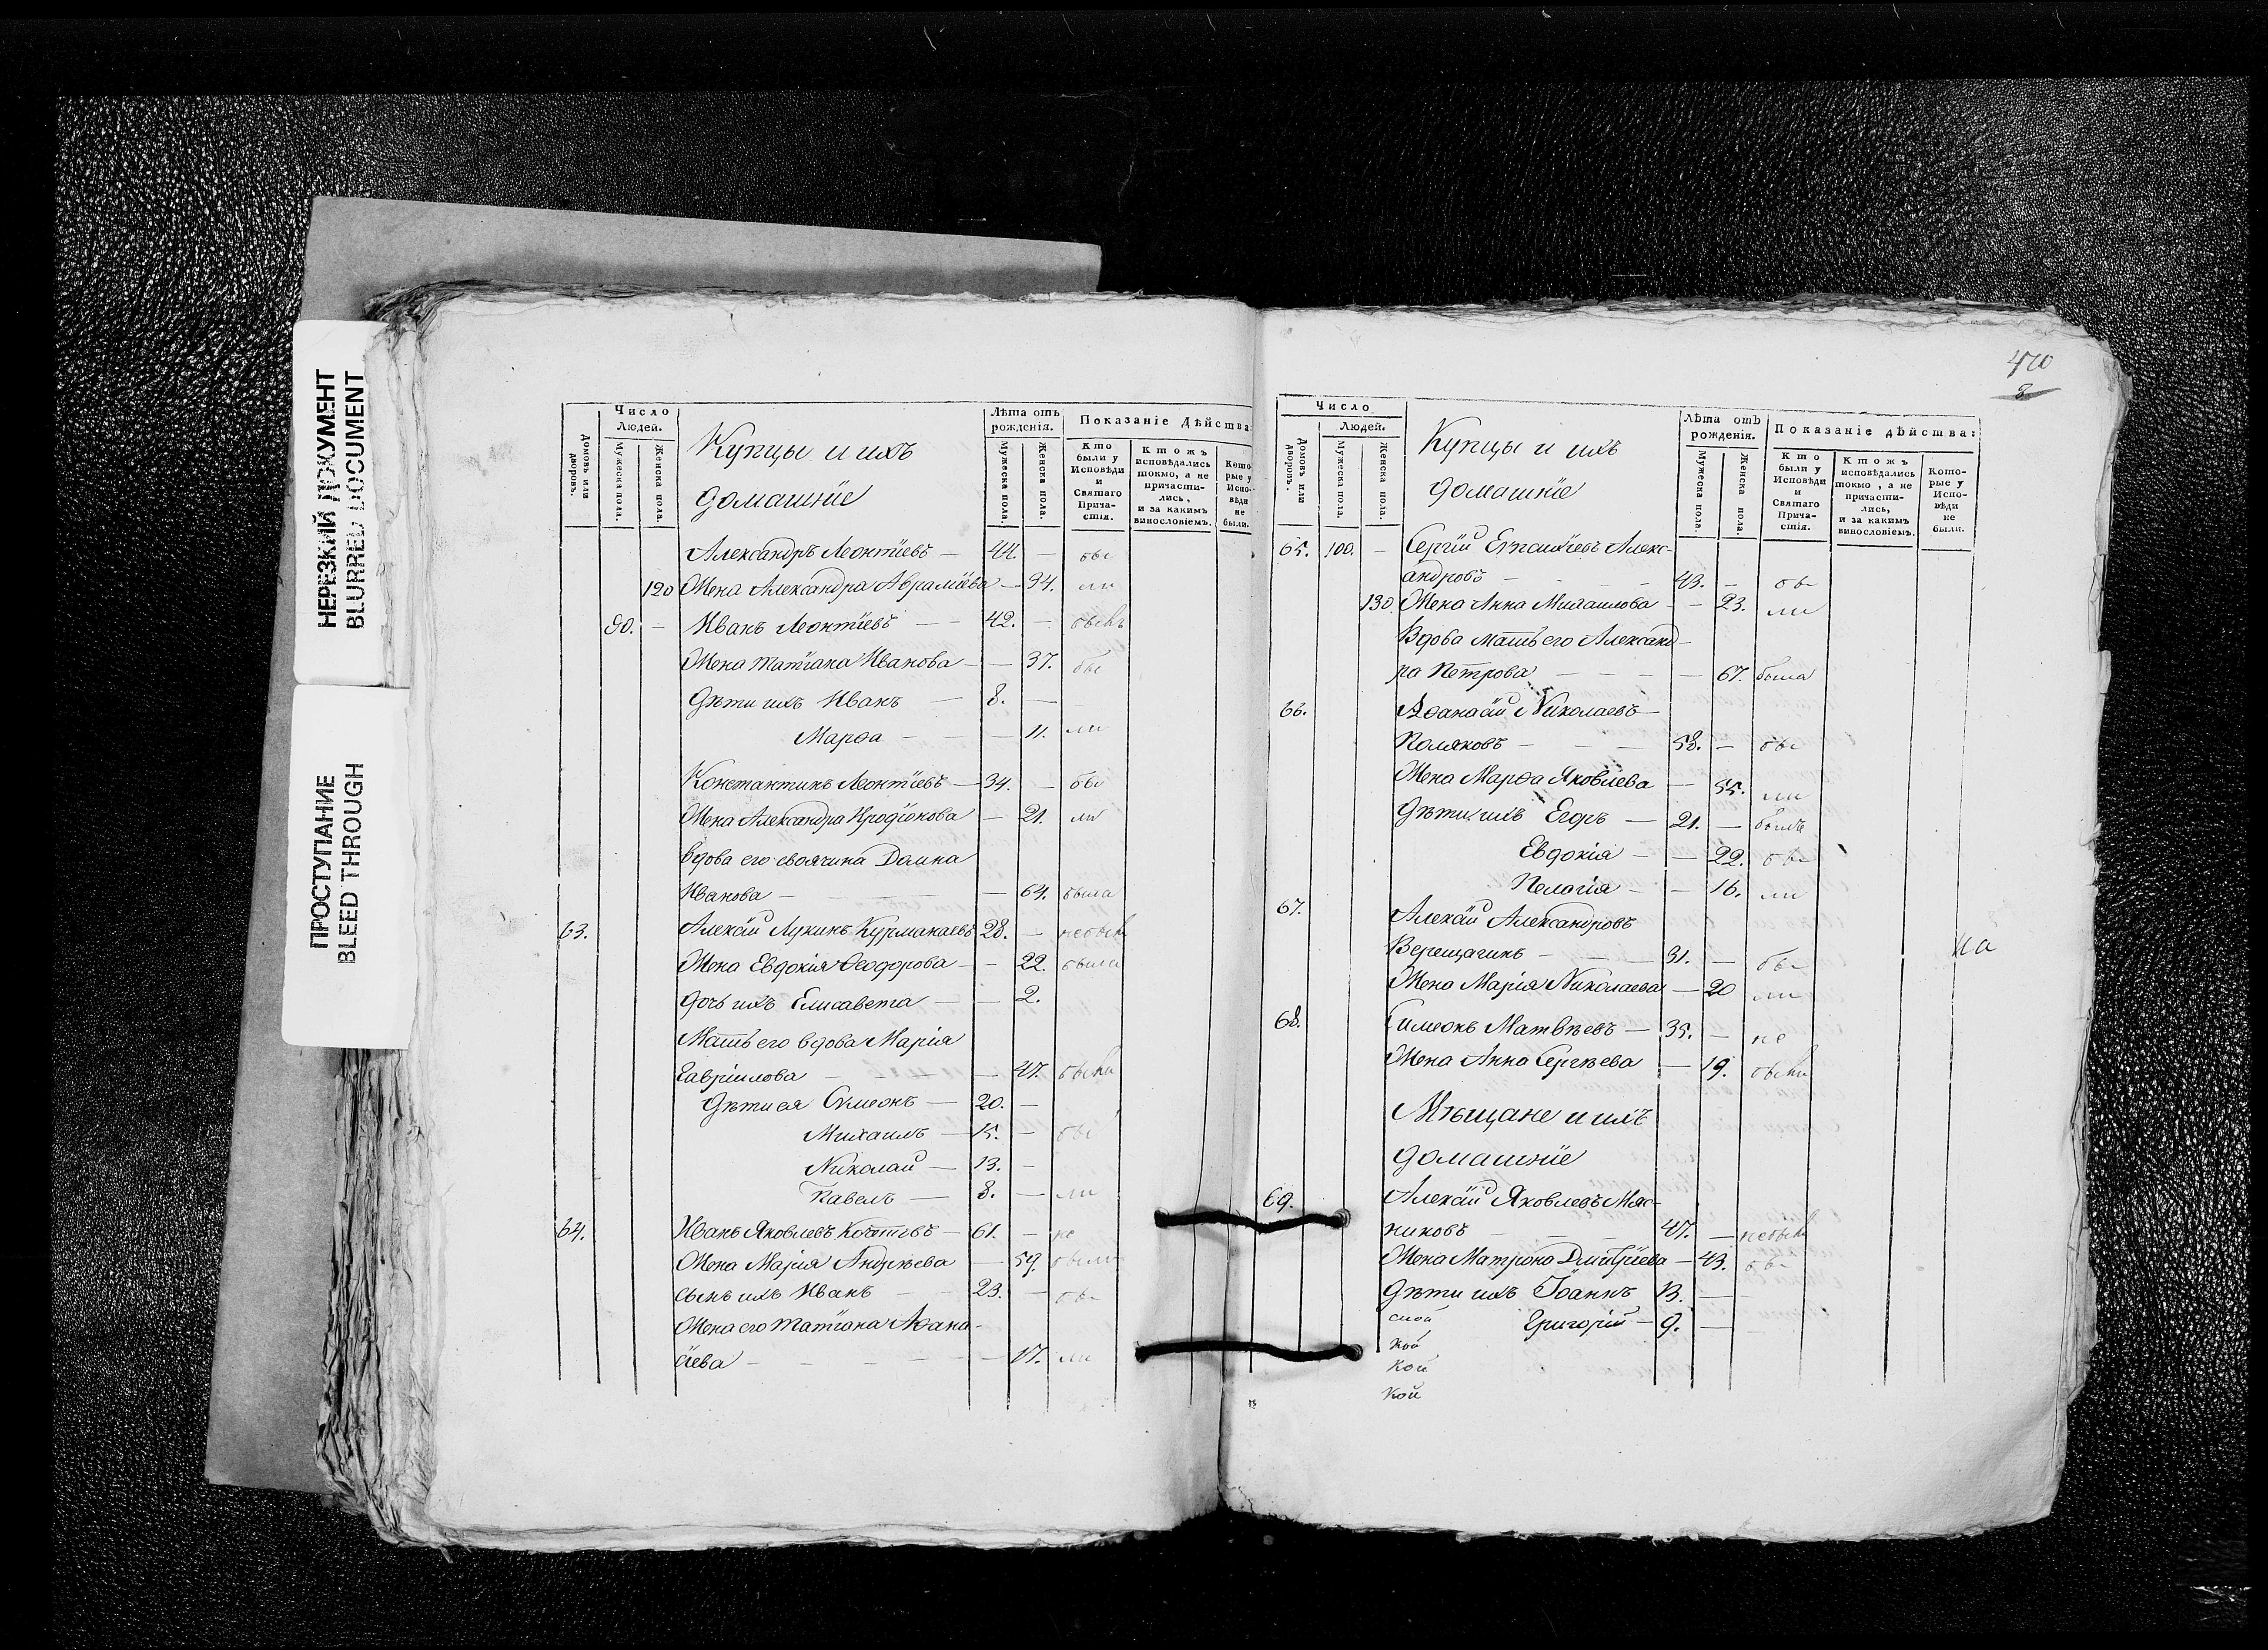 НЕРЕЗКИЙ ДОКУМЕНТ
BLURRED DOCUMENT
ПРОСТУПАНИЕ
BLEED THROUGH
Число Людей.
Домовъ или дворовъ.
Мужеска пола.
Женска пола.
Купцы и ихъ
домашнїе
Лѣта отъ рожденїя.
Мужеска пола.
Женска пола.
Показанїе Дѣйства:
Кто были у Исповѣди и Святаго Прича-стїя.
Ктожъ исповѣдались токмо, а не причасти-лись, и за какимъ винословіемъ.
Кото-рые у Испо-вѣди не были.
Александръ Леонтїевъ — 44. — бы
120 Жена Александра Аврамїева — 34. ли
90. — Иванъ Леонтїевъ — — 42. — былъ
Жена Татїана Иванова — — 37. бы
Дѣти ихъ Иванъ — 8. —
Марѳа — — — 11. ли
Константинъ Леонтїевъ — 34. — бы
Жена Александра Иродїонова — 21. ли
вдова его своячина Домна
Иванова — — 64. была
63. Алексїй Лукинъ Курманаевъ 28. — небылъ
Жена Евдокія Ѳеодорова — — 22. была
дочь ихъ Елисавета — — 2.
Мать его вдова Марія
Гавріилова — — 47. были
Дѣти ея Симеонъ — 20. —
Михаилъ — 15. — бы
Николай — 13. —
Павелъ — 8. — ли
64. Иванъ Яковлевъ — 61. — не
Жена Марія Андрѣева — 59. были
сынъ ихъ Иванъ — — 23. — бы
Жена его Татїана Аѳана-
сїева — — — — — 17. ли
470
8
Число Людей.
Домовъ или дворовъ.
Мужеска пола.
Женска пола.
Купцы и ихъ
домашнїе
Лѣта отъ рожденїя.
Мужеска пола.
Женска пола.
Показанїе дѣйства:
Кто были у Исповѣди и Святаго Прича-стїя.
Ктожъ исповѣдались токмо, а не причасти-лись, и за какимъ винословіемъ.
Кото-рые у Испо-вѣди не были.
65. 100. — Сергїй Алекс-
андровъ — — — 43. — бы
130. Жена Анна Михаилова — — 23. ли
Вдова мать его Александ-
ра Петрова — — — — 67. была
66. Аѳанасїй Николаевъ —
Поляковъ — — — 58. — бы
Жена Марѳа Яковлева — 55. ли
Дѣти ихъ Егоръ — 21. — былъ
Евдокія — — 22. бы
Пелагія — — 16. ли
67. Алексїй Александровъ
Верещагинъ — — — 31. — бы
на
Жена Марія Николаева — 20 ли
68. Симеонъ Матвѣевъ — 35. — не
Жена Анна Сергѣева — 19. были
Мѣщане и ихъ
домашнїе
69. Алексїй Яковлевъ Мяс-
никовъ — — — 47. — небылъ
Жена Матрона Димитрїева — 43. бы
Дѣти ихъ Їоаннъ 13. —
Григорїй — 9. —
ской
кой
кой
кой